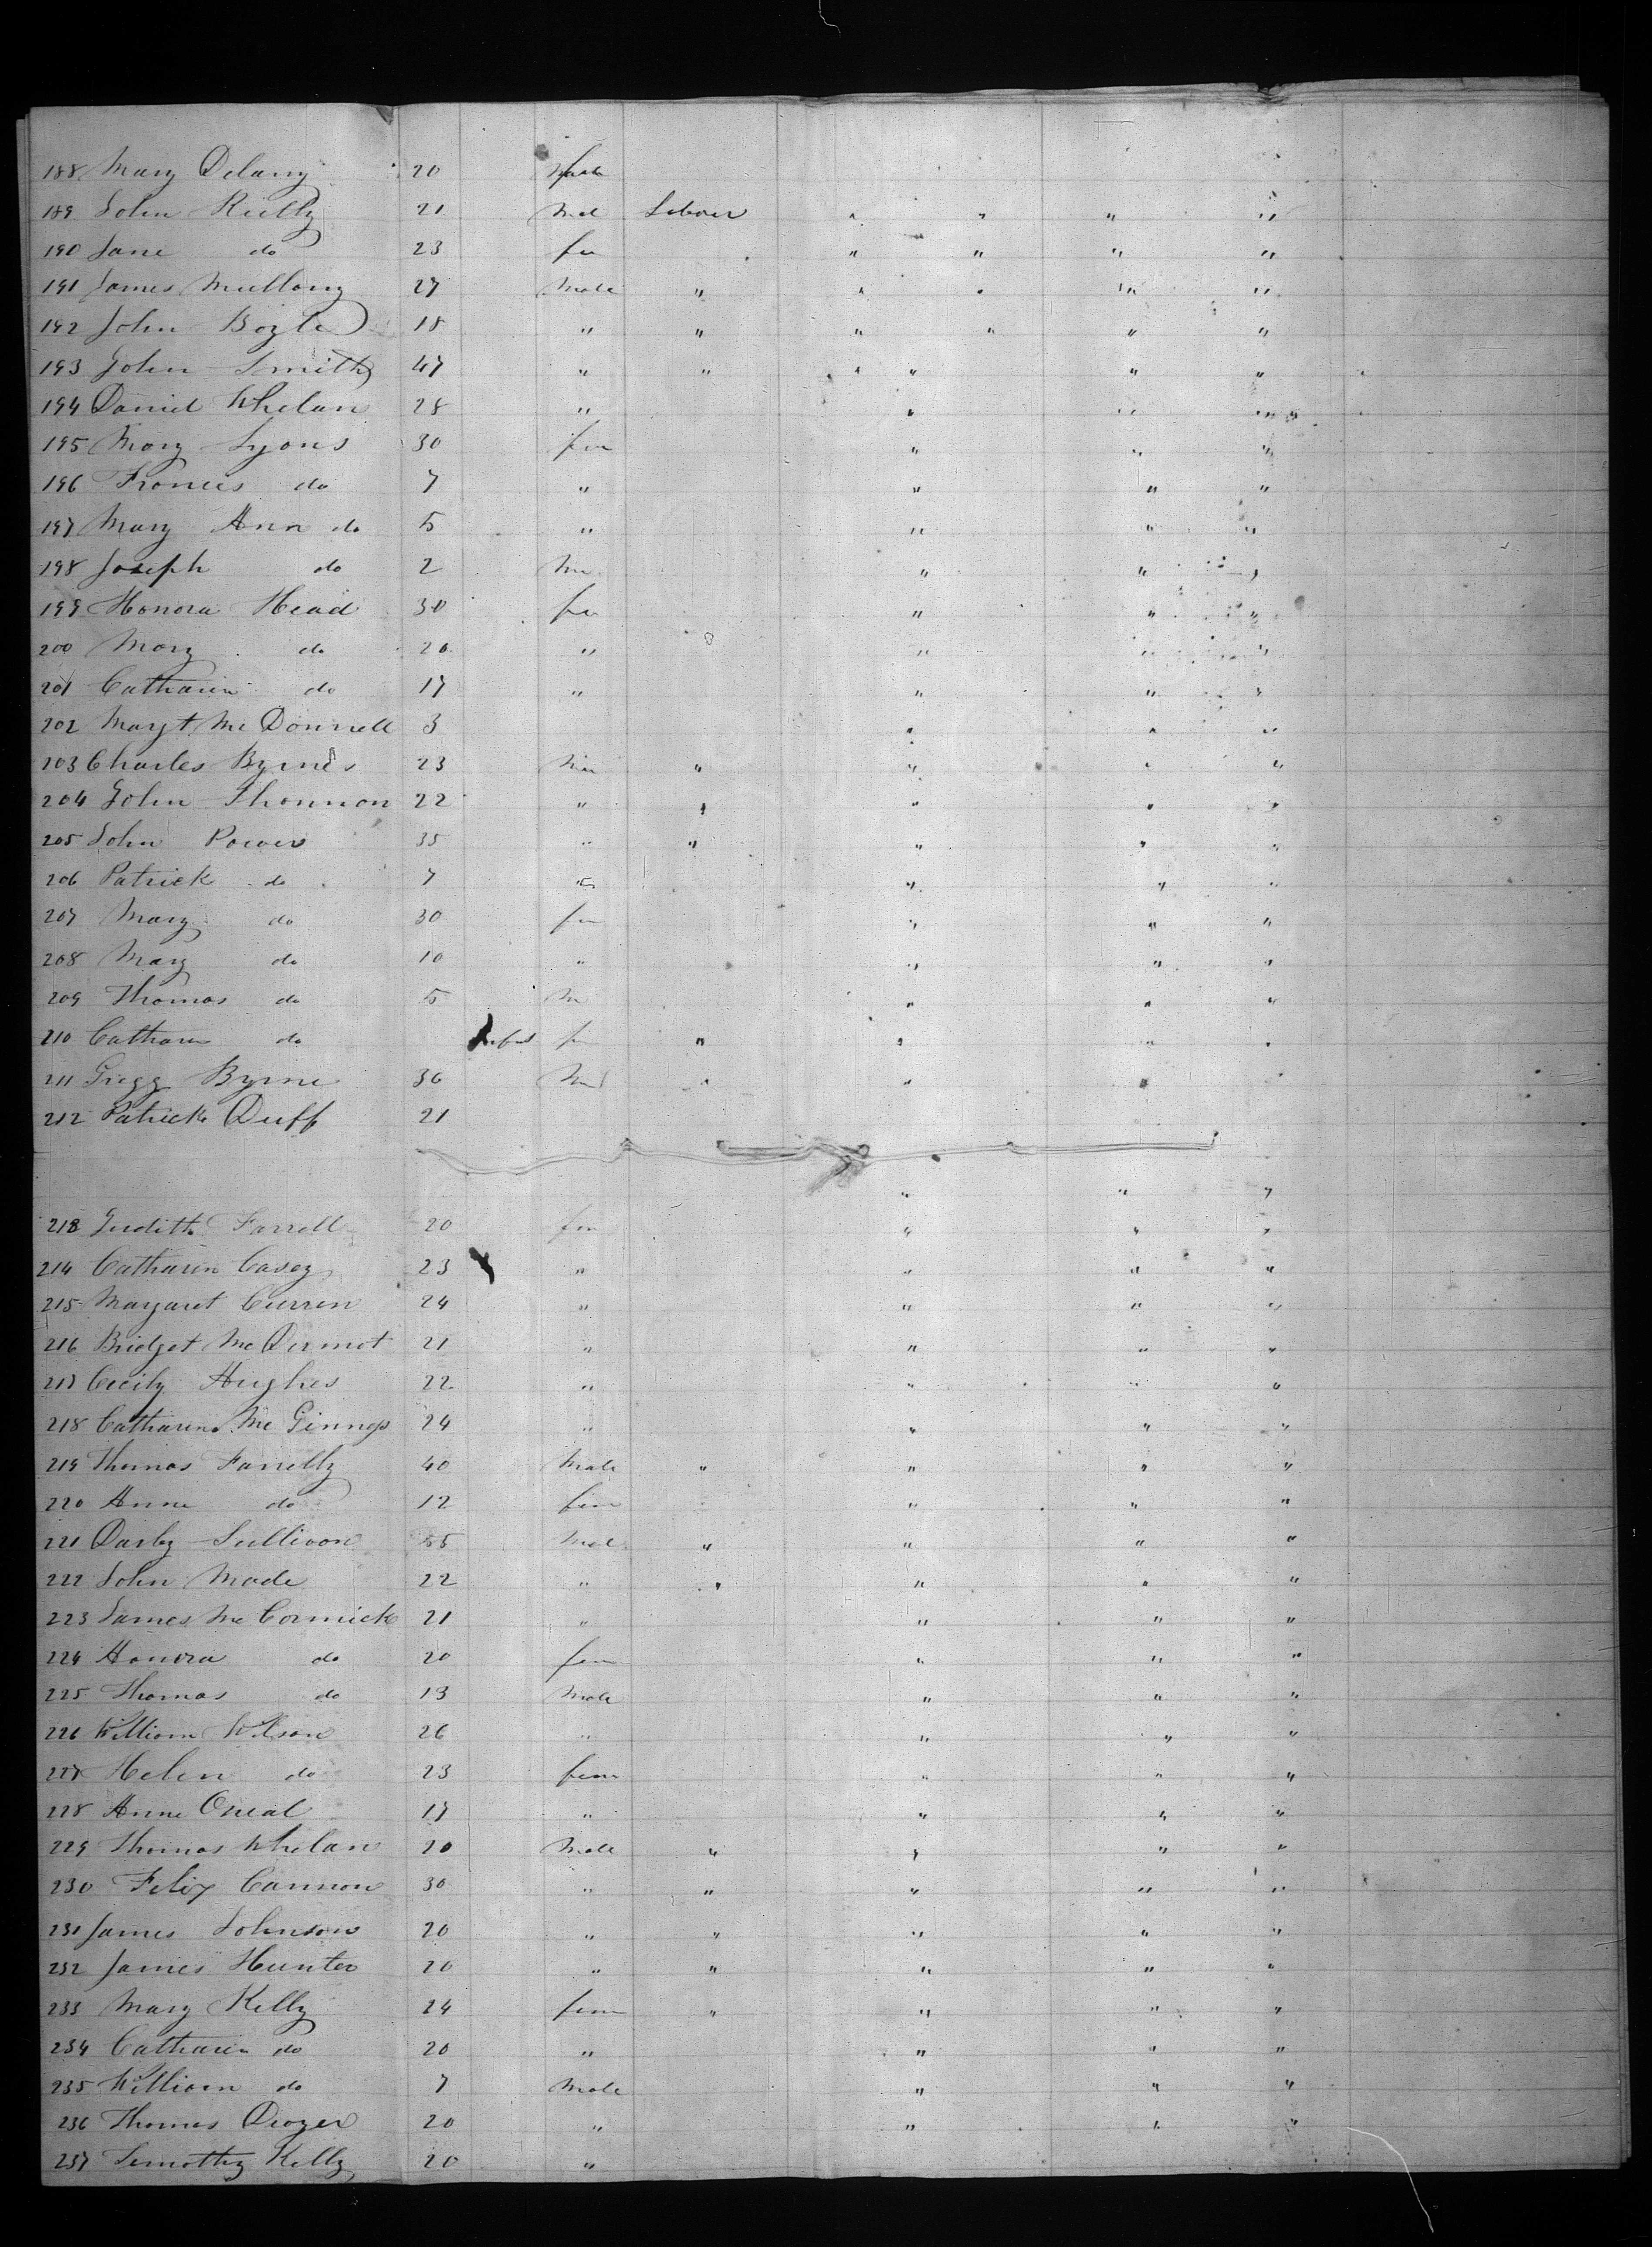 188 Mary Delany 20
189 John Reilly 21 Mal Labour " " " "
190 Jane do 23 fem " " " "
191 James Mullany 27 Male " " " " "
192 John Boyle 18 " " " " " "
193 John Smith 47 " " " " " "
194 Daniel Whelan 28 " " " "
195 Mary Lyons 30 fem " " "
196 Frances do 7 " " " "
197 Mary Ann do 5 " " " "
198 Joseph do 2 M " " "
199 Honora Head 30 fem " " "
200 Mary do 20 " " " "
201 Catharin do 17 " " " "
202 Margt McDonnell 3 " " "
203 Charles Byrnes 23 " " " "
204 John 22 " " " " "
205 John Power 35 " " " " "
206 Patrick do 7 " " " "
207 Mary do 30 fem " " "
208 Mary do 10 " " " "
209 Thomas do 5 M " " "
210 Catharin do fem " " " "
211 Gregg Byrne 36 M " " "
212 Patrick Duff 21
" " "
213 Judith Farrell 20 fem " " "
214 Catharin Casey 23 " " " "
215 Margaret Curren 24 " " " "
216 Bridget McDermot 21 " " " "
217 Cecily Hughes 22 " " " "
218 Catharine McGinness 24 " " " "
219 Thomas Farrelly 40 Male " " " "
220 Anne do 12 fem " " "
221 Darby Sullivan 55 Mal " " " "
222 John Made 22 " " " " "
223 James McCormick 21 " " " "
224 Honora do 20 fem " " "
225 Thomas do 13 Male " " "
226 William Wilson 26 " " " "
227 Helen do 23 fem " " "
228 Anne Oneal 17 " " " "
229 Thomas Whelan 20 Male " " " "
230 Felix Cannon 30 " " " " "
231 James Johnson 20 " " " " "
232 James Hunter 20 " " " " "
233 Mary Kelly 24 fem " " " "
234 Catharin do 20 " " " "
235 William do 7 Male " " "
236 Thomas 20 " " " "
237 Timothy Kelly 20 "